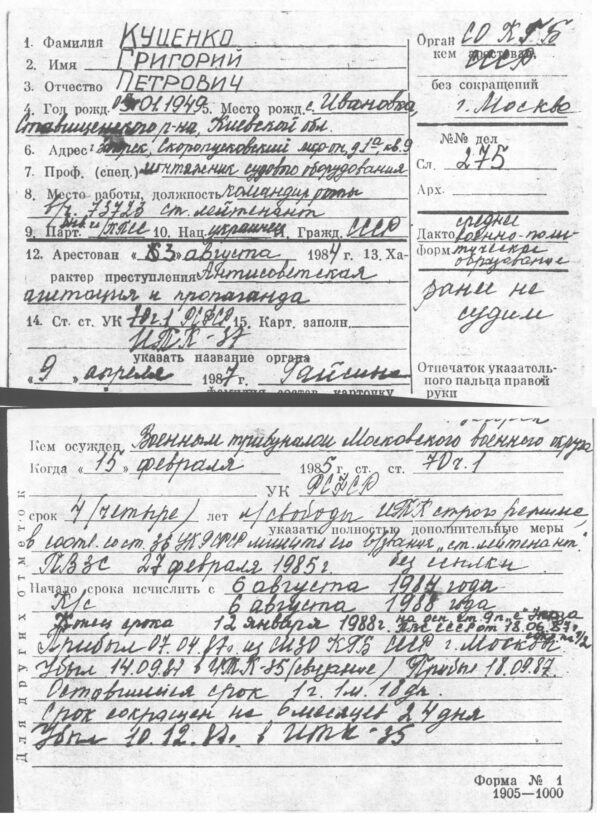 1. Фамилия КУЦЕНКО
2. Имя ГРИГОРИЙ
3. Отчество ПЕТРОВИЧ
4. Год рожд. 01.1949 5. Место рожд. с. Ивановка,
Ставищенского р-на, Киевской обл.
6. Адрес: Скоропусковский д. 1а кв. 9
7. Проф. (спец.) монтажник судового оборудования
8. Место работы, должность командир роты
в/ч. 73723 ст. лейтенант
9. Парт. КПСС 10. Нац. украинец 11. Гражд. СССР
12. Арестован « 3 » августа 1984 г. 13. Ха-
рактер преступления Антисоветская
агитация и пропаганда
14. Ст. ст. УК 70 ч. 1 РСФСР 15. Карт. заполн.
ИТК-37
указать название органа
« 9 » апреля 1987 г.
Орган СО КГБ
кем арестован,
СССР
без сокращений
г. Москва
№№ дел
Сл. 275
Арх.
Дакто
форм
среднее
военно-поли-
тическое
ранее не
судим
Отпечаток указатель-
ного пальца правой
руки
Кем осужден Военным трибуналом Московского военного округа
Когда « 15 » февраля 1985 г. ст. ст. 70 ч. 1
УК РСФСР
срок 4 (четыре) лет л/свободы ИТК строго режима,
указать полностью дополнительные меры
в соотв. со ст. 36 УК РСФСР лишить его в/звания „ст. лейтенант".
ПВЗС 27 февраля 1985 г. без ссылки
Начало срока исчислить с 6 августа 1984 года
К/с 6 августа 1988 года
Конец срока 12 января 1988 г. на осн. ст. Указа
ПВС СССР от 18.06.87 г.
Прибыл 07.04.87 г. из СИЗО КГБ СССР г. Москвы
Убыл 14.09.87 в ИТК-35 (свидание) Прибыл 18.09.87.
Оставшийся срок 1 г. 1 м. 18 дн.
Срок сокращен на 6 месяцев 24 дня
Убыл 10.12.87 г. в ИТК-35
Для других отметок
Форма № 1
1905—1000